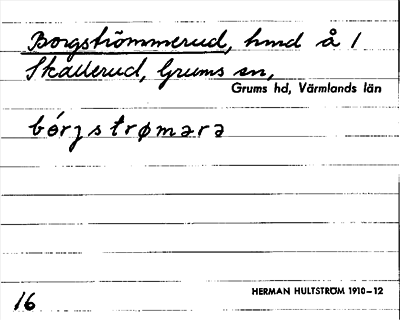 Borgströmmerud, hmd å 1
Skallerud, Grums sn,
Grums hd, Värmlands län
bórgstrømərə
HERMAN HULTSTRÖM 1910–12
16